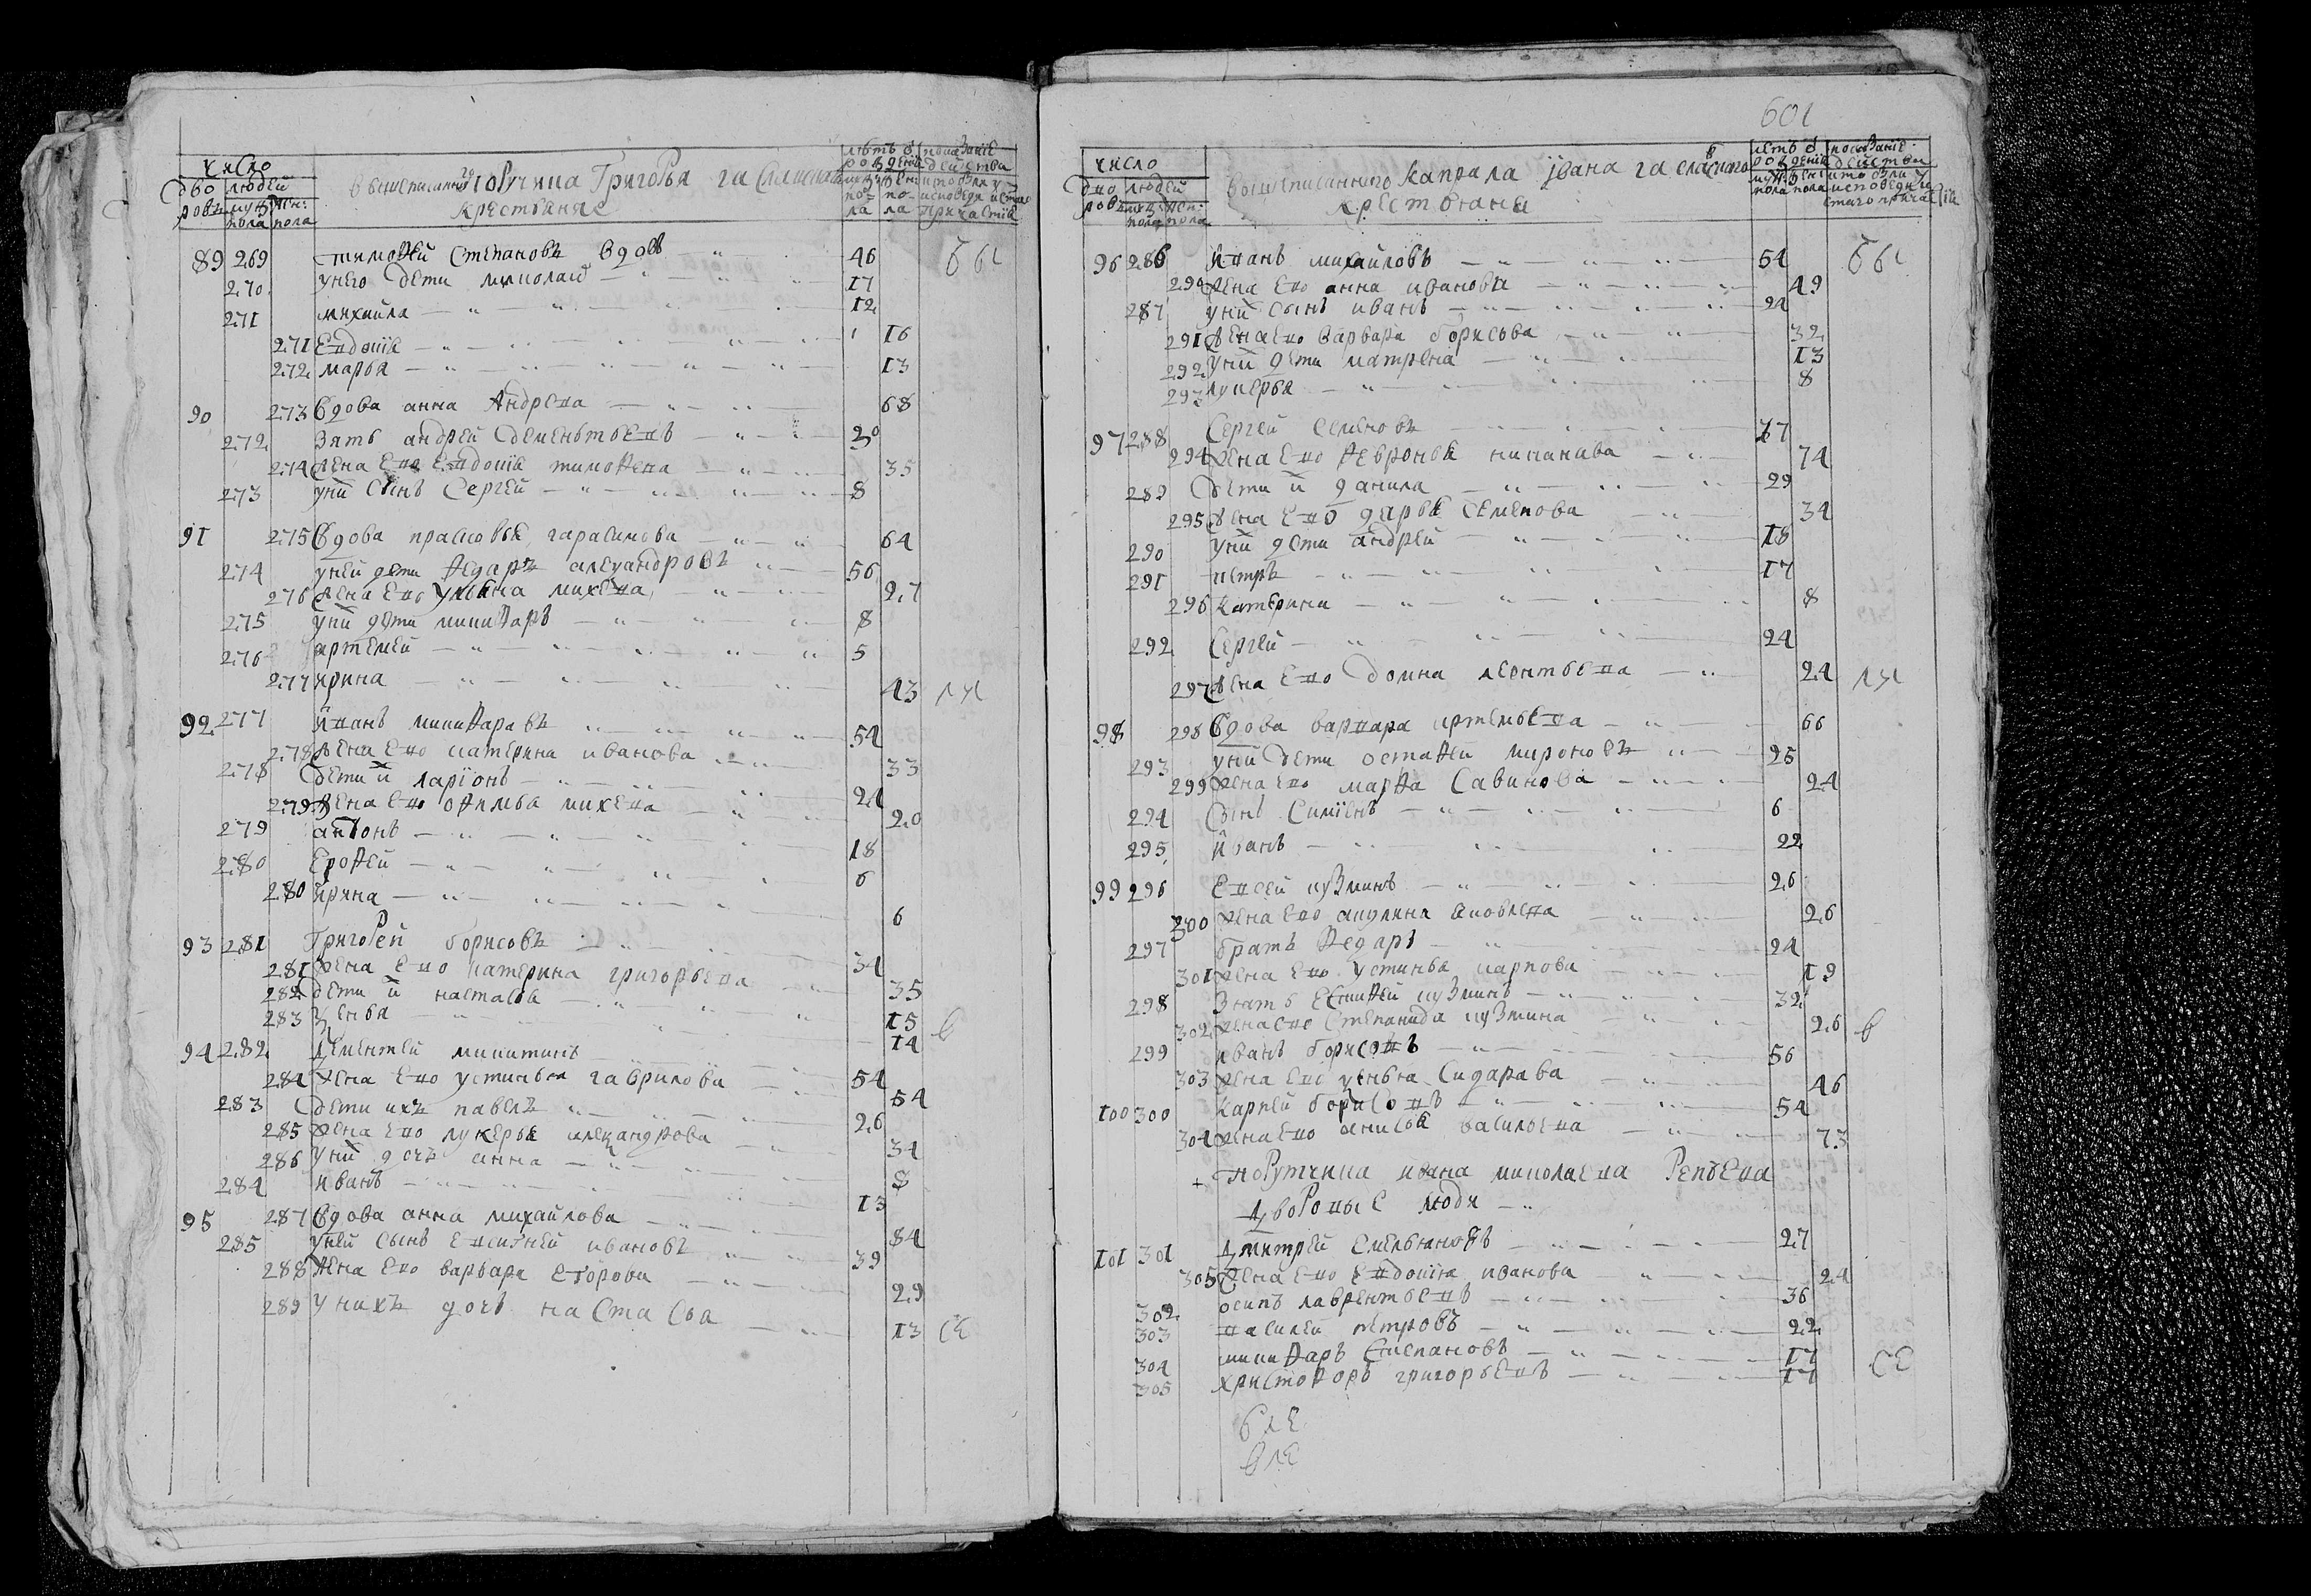 число
дво людей
ровъ муж жен:
пола пола
вышеписанного порутчика Григорья
крестьяне
летъ о рождения
муж: жен:
по- по-
ла ла
показание действа
кто был у исповеди и стаго причастия
89 269 тимофей Степановъ вдовъ 46 были
270 унего дети николай 17
271 михайла 12
271 Евдокия 16
272 марья 13
90 273 вдова анна Андреева 68
272 Зять андрей Дементьевъ 30
274 жена ево Евдокия тимофеева 35
273 уних сынъ Сергей 8
91 275 вдова прасковья гарасимова 64
274 уней дети Федаръ александровъ 56
276 жена ево ульяна михева 27
275 уних дети никифаръ 8
276 артемей 5
277 ирина 43
92 277 иванъ никифаравъ 54
278 жена ево катерина иванова 33
278 дети их ларионъ 24
279 жена ево офимья михева 20
279 антонъ 18
280 Ерофей 6
280 ирина 6
93 281 Григорей борисовъ 34
281 жена ево катерина григорьева 35
282 дети их настасья 15
283 уленья 14
94 282 Дементей никитинъ 54
284 жена ево устинья гаврилова 54
283 дети ихъ павелъ 26
285 жена ево лукерья александрова 34
286 уних дочь анна 8
284 иванъ 13
95 287 вдова анна михайлова 84
285 уней сынъ Евсигней ивановъ 39
288 жена ево варвара Егорова 29
289 унихъ дочь настасья 13 СЕ
601
число
дво людей
ровъ муж жен:
пола пола
вышеписанного капрала Ивана
крестьяне
летъ о рождения
муж: жен:
пола пола
показание действа
кто были у исповеди и стаго причастия
96 286 иванъ михайловъ 54 были
290 жена ево анна иванова 49
287 уних сынъ иванъ 24
291 жена ево варвара борисова 32
292 уних дети матрена 13
293 лукерья 8
97 288 Сергей семеновъ 77
294 жена ево февронья 74
289 Дети их данила 29
295 жена ево дарья семенова 34
290 уних дети андрей 18
291 петръ 17
296 катерина 8
292 Сергей 24
297 жена ево домна леонтьева 24
98 298 вдова варвара артемьева 66
293 уний дети остафей мироновъ 25
299 жена ево марфа Савинова 24
294 сынъ Симионъ 6
295 иванъ 22
99 296 Евсей кузминъ 26
300 жена ево акулина яковлева 26
297 братъ Федаръ 24
301 жена ево устинья карпова 19
298 Зять кузминъ 32
302 жена ево степанида кузмина 26
299 иванъ борисовъ 56
303 жена ево уленья Сидарава 46
100 300 карпей борисовъ 54
304 жена ево анисья васильева 73
порутчика ивана николаева Репьева
Дворовые люди
101 301 Дмитрей Емельяновъ 27
305 жена ево Евдокия иванова 24
302 осипъ лаврентьевъ 36
303 василей петровъ 22
304 никифаръ Степановъ 17 СЕ
305 христофоръ григорьевъ 17